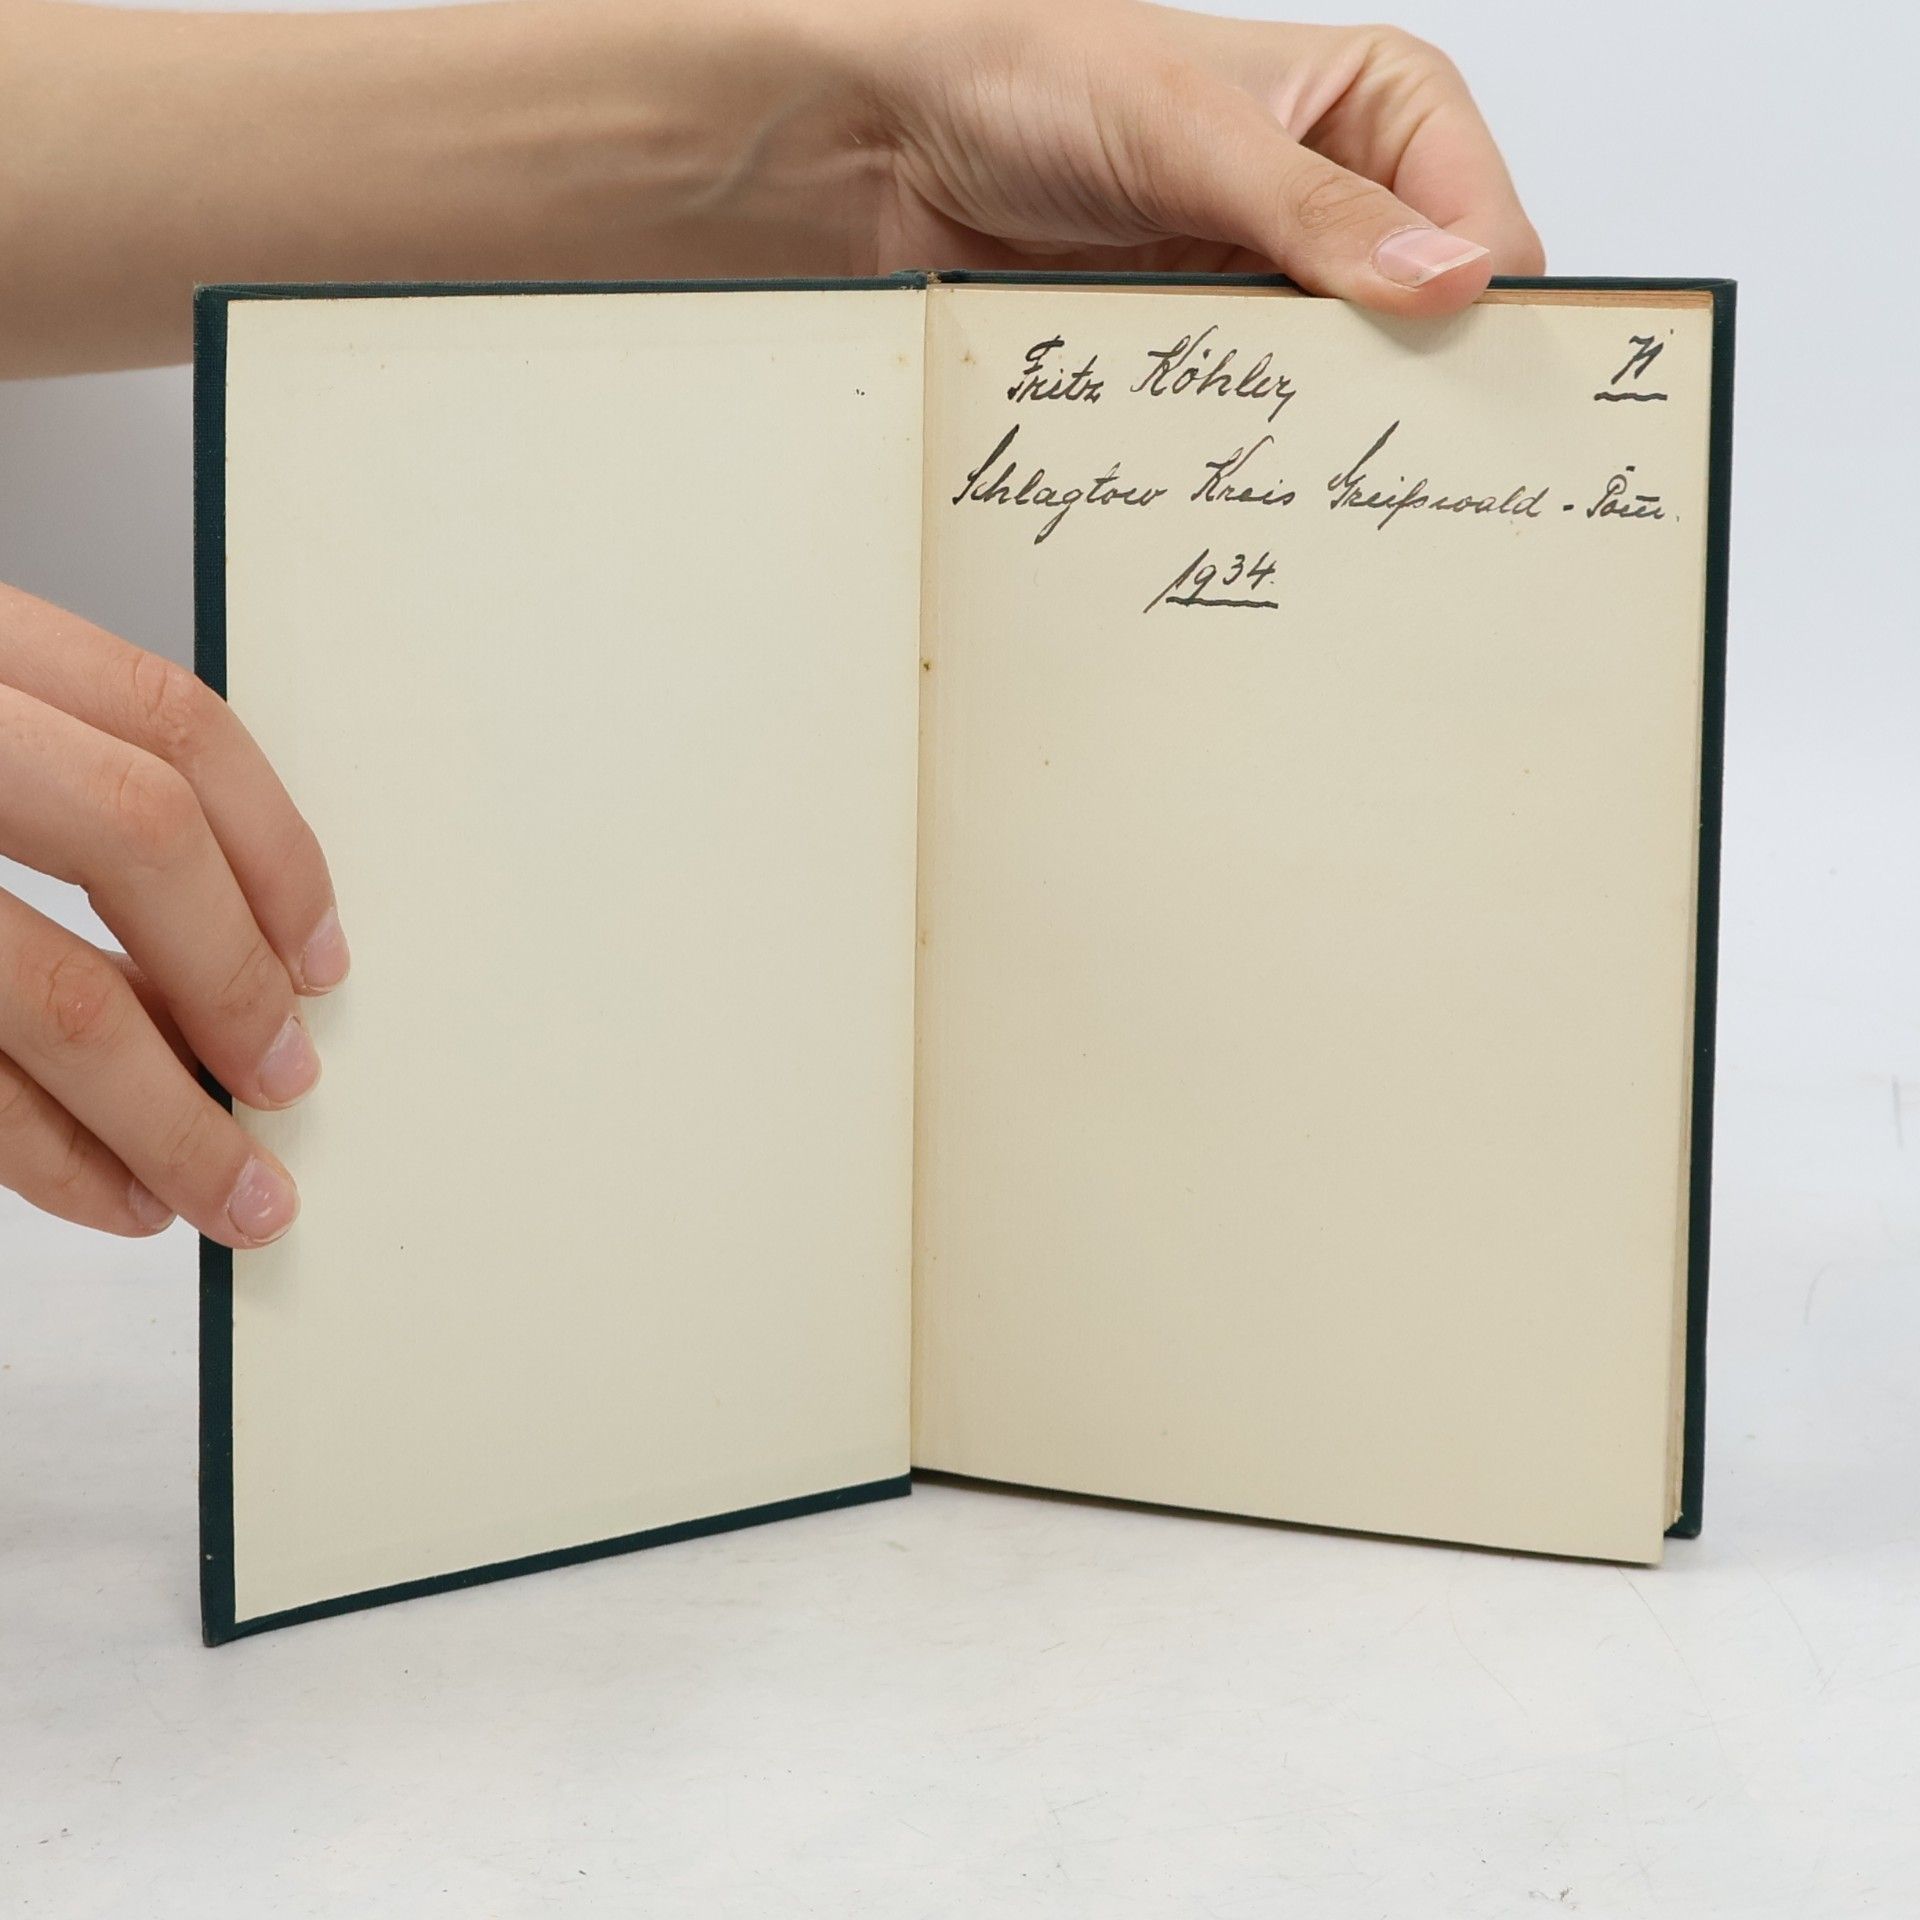 Fritz Köhler, 71
Schlagtow Kreis Greifswald - Pom.
1934.